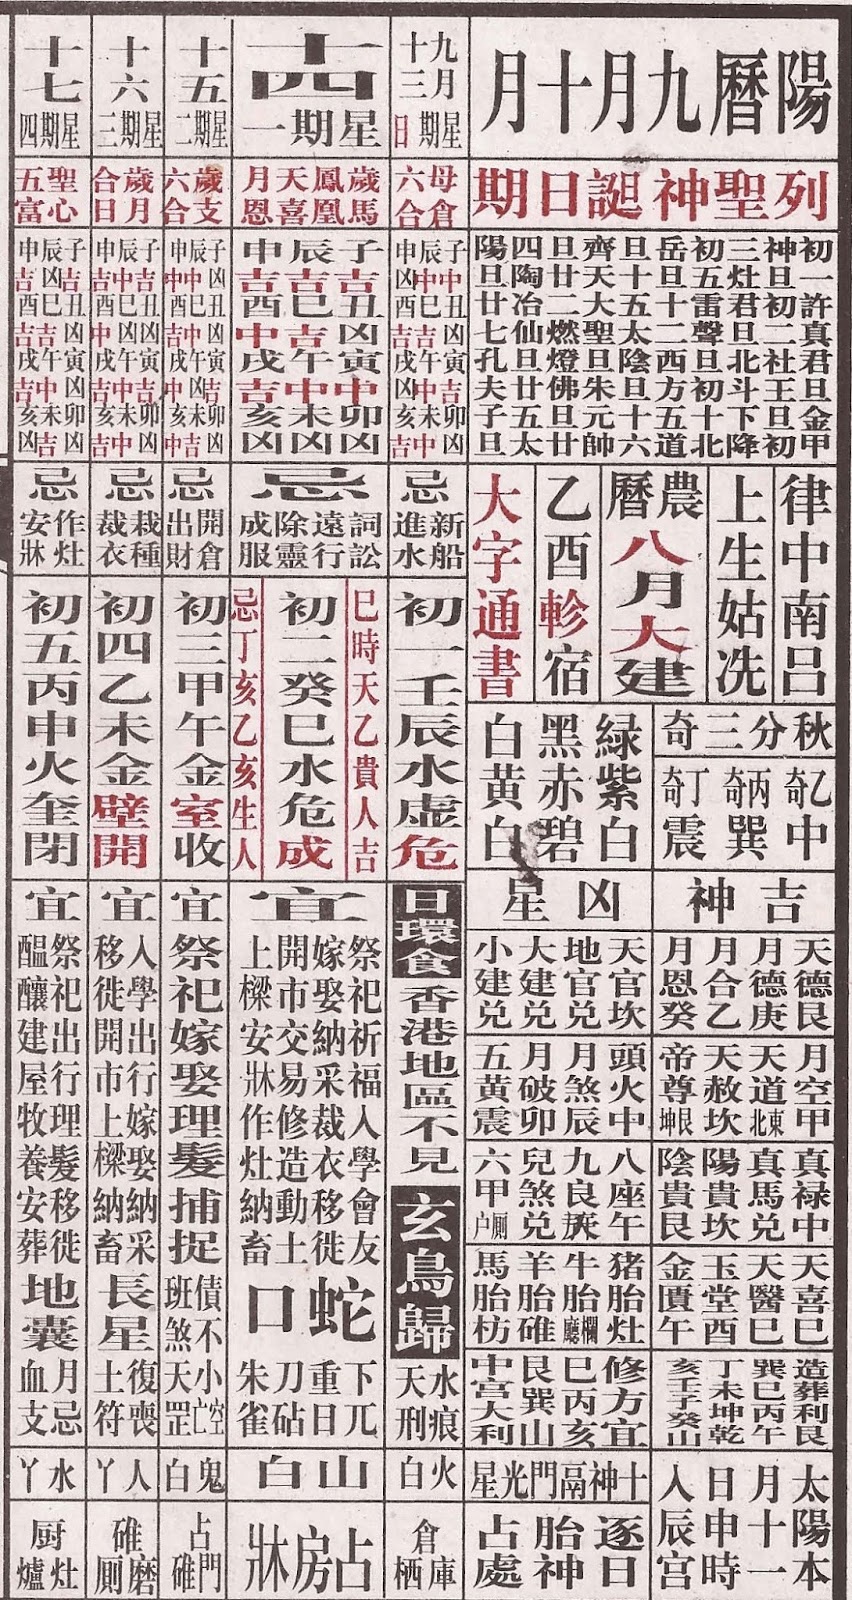 陽曆九月十月
列聖神誕日期
初一許真君旦金甲
神旦初二社王旦初
三灶君旦北斗下降
初五雷聲旦初十北
岳旦十二西方五道
旦十五太陰旦十六
齊天大聖旦朱元帥
旦廿二燃燈佛旦廿
四陶冶仙旦廿五太
陽旦廿七孔夫子旦
律中南呂
上生姑洗
農曆
八月大建
乙酉軫宿
大字通書
秋分三奇
乙奇中
丙奇巽
丁奇震
綠紫白
黑赤碧
白黃白
吉神
天德艮
月德庚
月合乙
月恩癸
月空甲
天道東北
天赦坎
帝尊艮坤
真祿中
真馬兌
陽貴坎
陰貴艮
天喜巳
天醫巳
玉堂酉
金匱午
造葬利艮
巽巳丙午
丁未坤乾
亥壬子癸山
太陽本
月十一
日申時
入辰宮
凶星
天官坎
地官兌
大建兌
小建兌
頭火中
月煞辰
月破卯
五黃震
八座午
九良
兒煞兌
六甲厠户
猪胎灶
牛胎欄廳
羊胎碓
馬胎枋
修方宜
巳丙亥
艮巽山
中宮大利
十神鬲門光星
逐日
胎神
占處
九月
十三
星期日
母倉
六合
子中丑凶寅凶卯凶
辰中巳吉午中未中
申凶酉吉戌吉亥吉
忌
新船
進水
初一壬辰水虛危
日環食
香港地區不見
玄鳥歸
水痕
天刑
火白
倉庫
栖
十四
星期一
歲馬
鳳凰
天喜
月恩
子吉丑凶寅中卯凶
辰吉巳吉午中未凶
申吉酉中戌吉亥凶
忌
詞訟
遠行
除靈
成服
巳時天乙貴人吉
初二癸巳水危成
忌丁亥乙亥生人
宜
祭祀祈福入學會友
嫁娶納采裁衣移徙
開市交易修造動土
上樑安牀作灶納畜
蛇口
下兀
重日
刀砧
朱雀
山白
占房牀
十五
星期二
歲支
六合
忌
開倉
出財
初三甲午金室收
宜
祭祀嫁娶理髮捕捉
債不
班煞
小空亡
天罡
鬼白
占門
碓
十六
星期三
歲月
合日
忌
栽種
裁衣
初四乙未金壁開
宜
入學出行嫁娶納采
移徙開市上樑納畜
長星
復喪
土符
人丫
碓磨
厠
十七
星期四
聖心
五富
忌
作灶
安牀
初五丙申火奎閉
宜
祭祀出行理髮移徙
醖釀建屋牧養安葬
地囊
月忌
血支
水丫
厨灶
爐